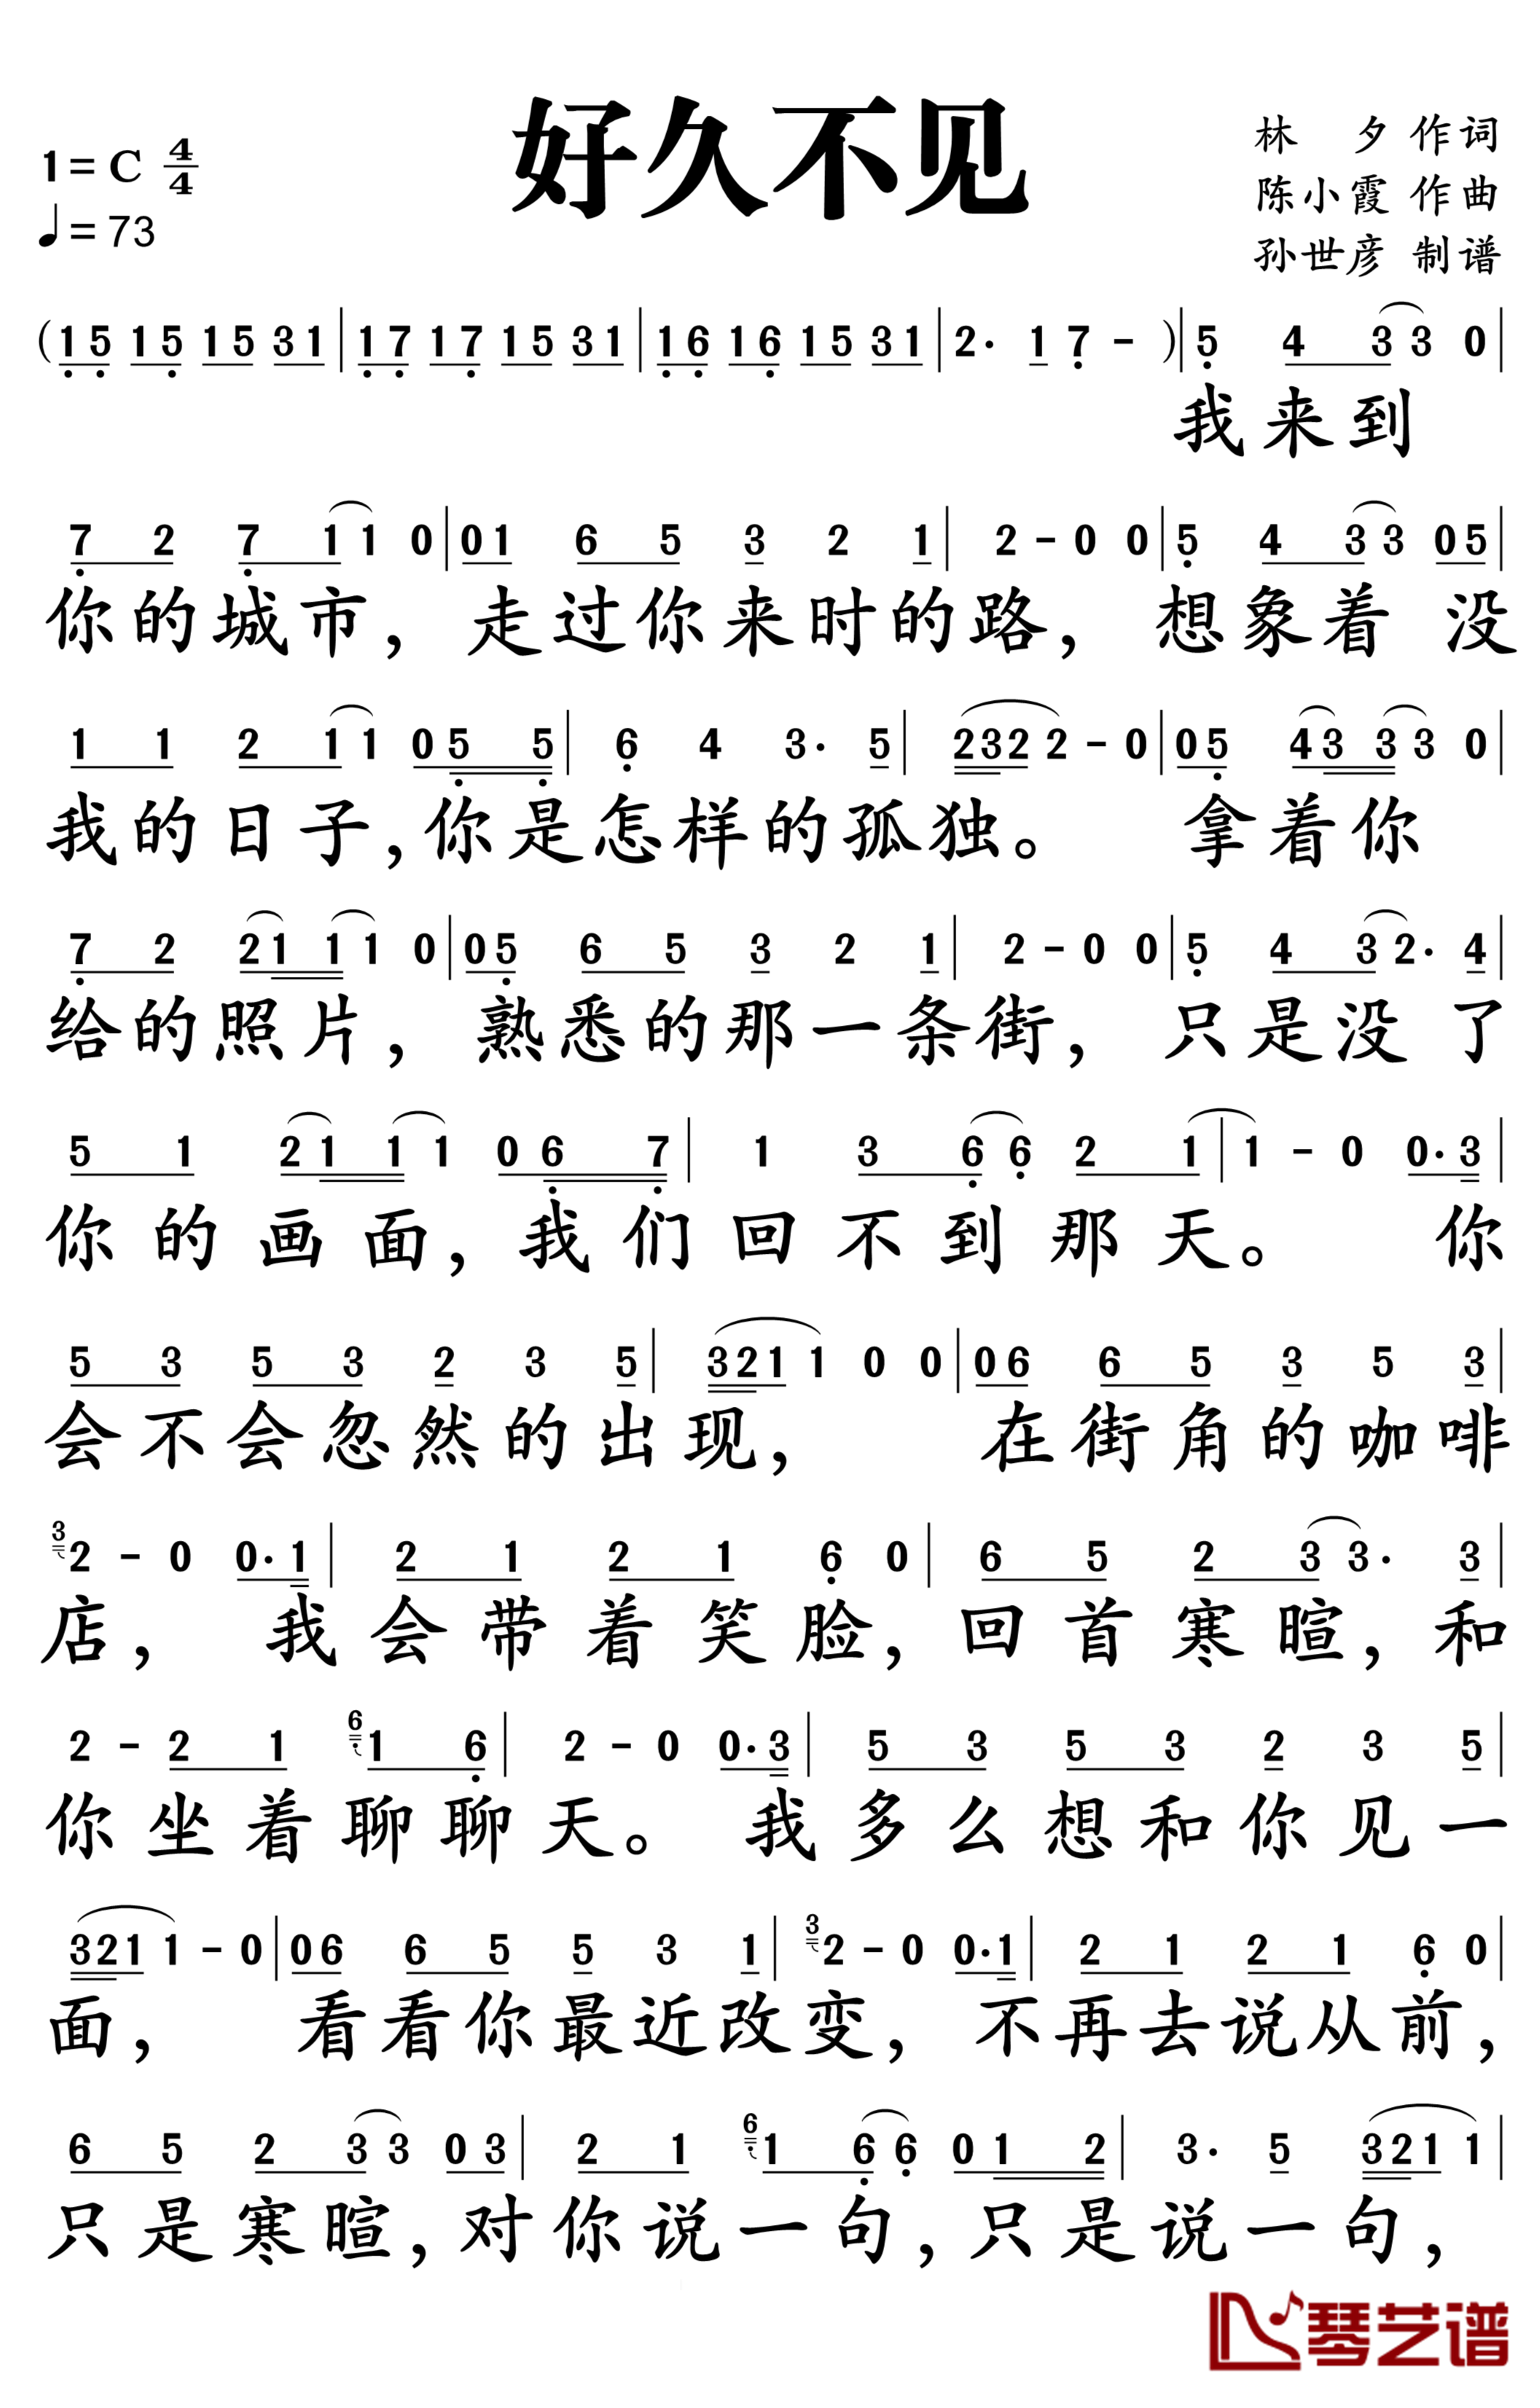 好久不见
1=C 4/4
♩=73
林 夕 作词
陈小霞 作曲
孙世彦 制谱
(15 15 15 31|17 17 15 31|16 16 15 31|2· 1 7 - )|5 4 33 0|
我来到
7 2 7 11 0|01 6 5 3 2 1|2 - 0 0|5 4 33 05|
你的城市，走过你来时的路，想象着 没
1 1 2 11 0 5 5|6 4 3· 5|2322 - 0|05 43 33 0|
我的日子，你是怎样的孤独。 拿着你
7 2 21 11 0|05 6 5 3 2 1|2 - 0 0|5 4 32· 4|
给的照片，熟悉的那一条街，只是没了
5 1 21 11 0 6 7|1 3 66 2 1|1 - 0 0·3|
你的画面，我们回不到那天。 你
5 3 5 3 2 3 5|3211 0 0|06 6 5 3 5 3|
会不会忽然的出现， 在街角的咖啡
3 2 - 0 0·1|2 1 2 1 6 0|6 5 2 33· 3|
店， 我会带着笑脸，回首寒暄，和
2 - 2 1 6 1 6|2 - 0 0·3|5 3 5 3 2 3 5|
你坐着聊聊天。 我多么想和你见一
3211 - 0|06 6 5 5 3 1|3 2 - 0 0·1|2 1 2 1 6 0|
面， 看看你最近改变，不再去说从前，
6 5 2 33 03|2 1 6 1 66 0 1 2|3· 5 3211|
只是寒暄，对你说一句，只是说一句，
琴艺谱